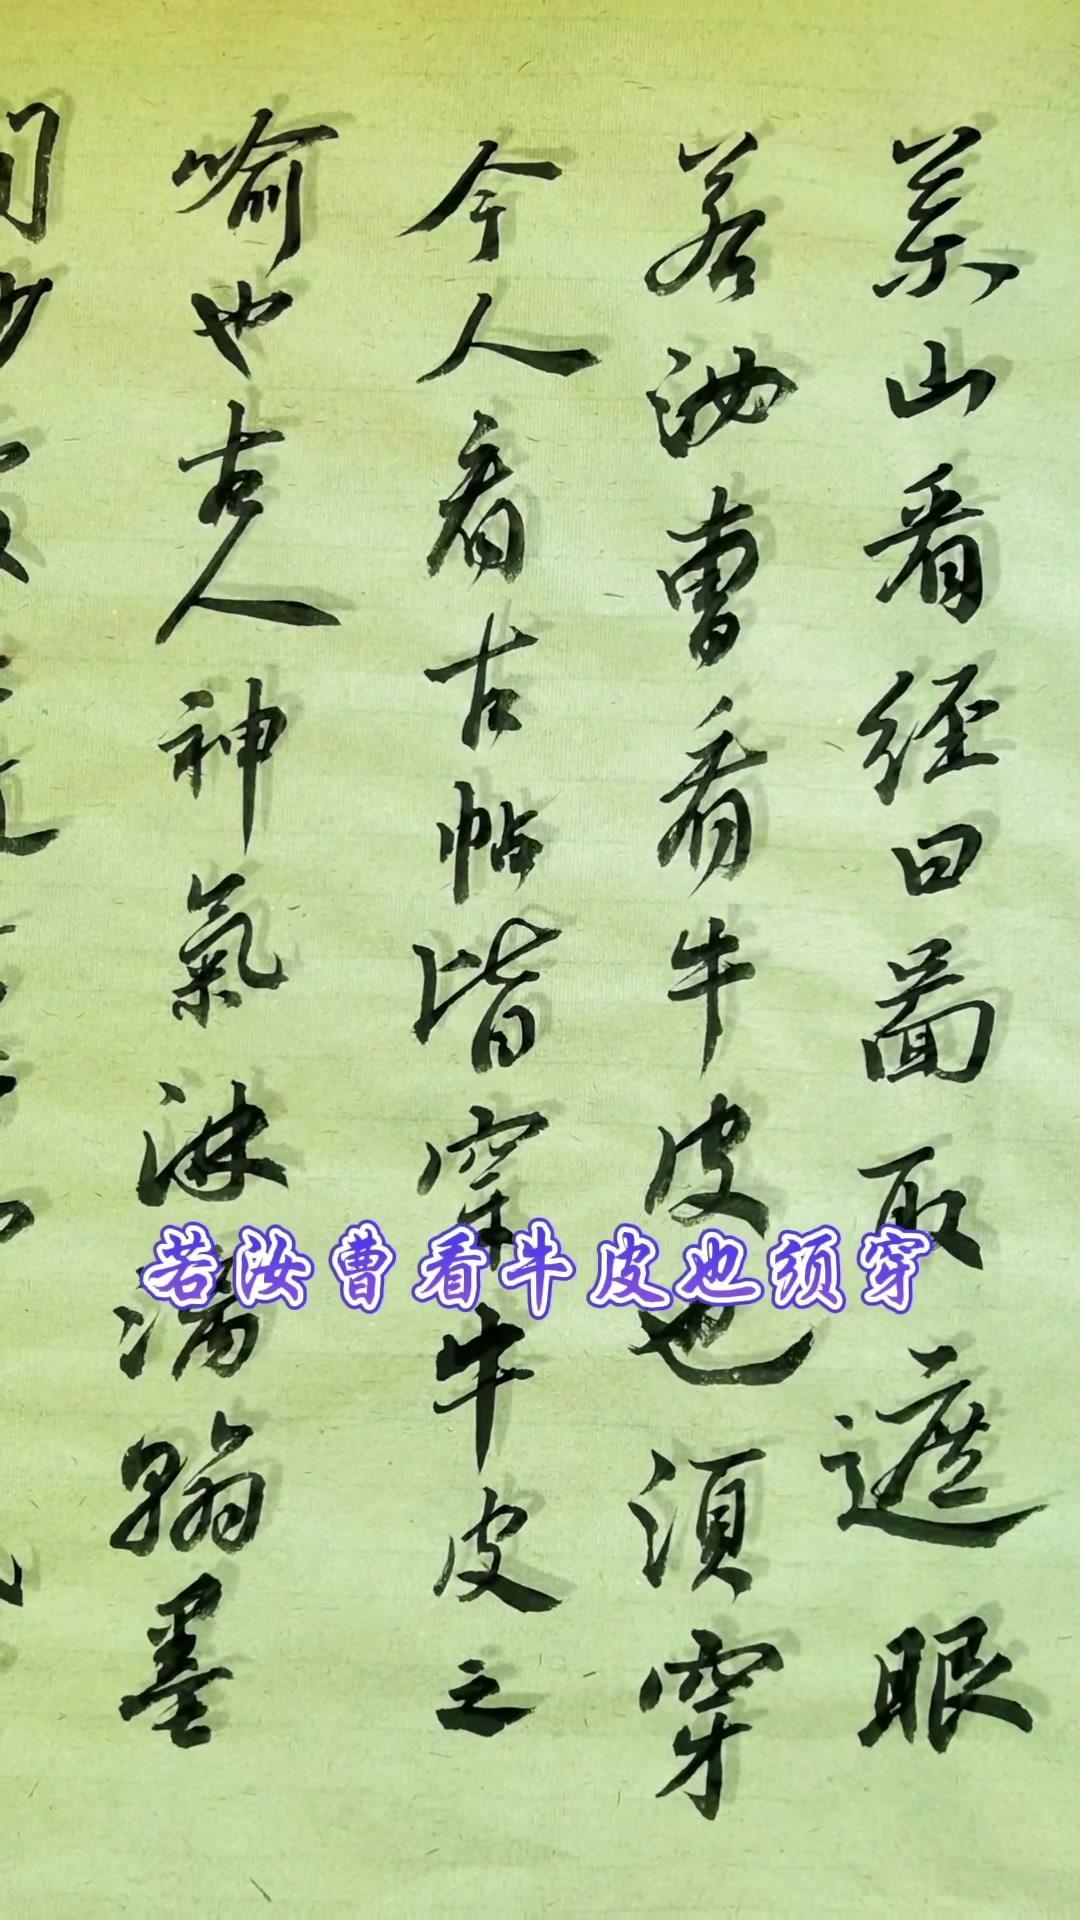 藥山看經曰圖取遮眼
若汝曹看牛皮也須穿
今人看古帖皆穿牛皮之
喻也古人神氣淋漓翰墨
若汝曹看牛皮也须穿